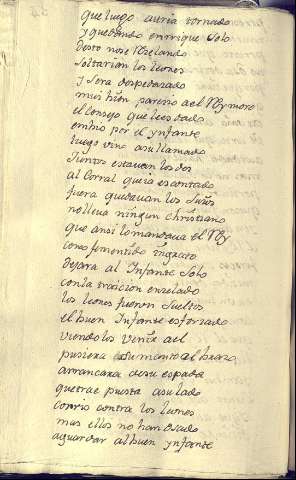 que luego auria tornado
y quedando enrrique solo
desto no se Rzelando
soltarian los leones
y sera despedazado
mui bien parezio a el Rey moro
el consejo que le es dado
embio por el ynfante
luego vino a su llamado
Juntos estauan los dos
al Corral que ia es contado
fuera quedauan los suios
no lleua ningun christiano
que ansi lo mandaua el Rey
como fementido ingrato
dejara al Infante solo
con la traicion enzelado
los leones fueron sueltos
el buen Infante esforzado
viendolos venir a el
pusiera su manto al brazo
arrancara de su espada
que trae puesta a su lado
corrio contra los leones
mas ellos no han osado
aguardar al buen ynfante